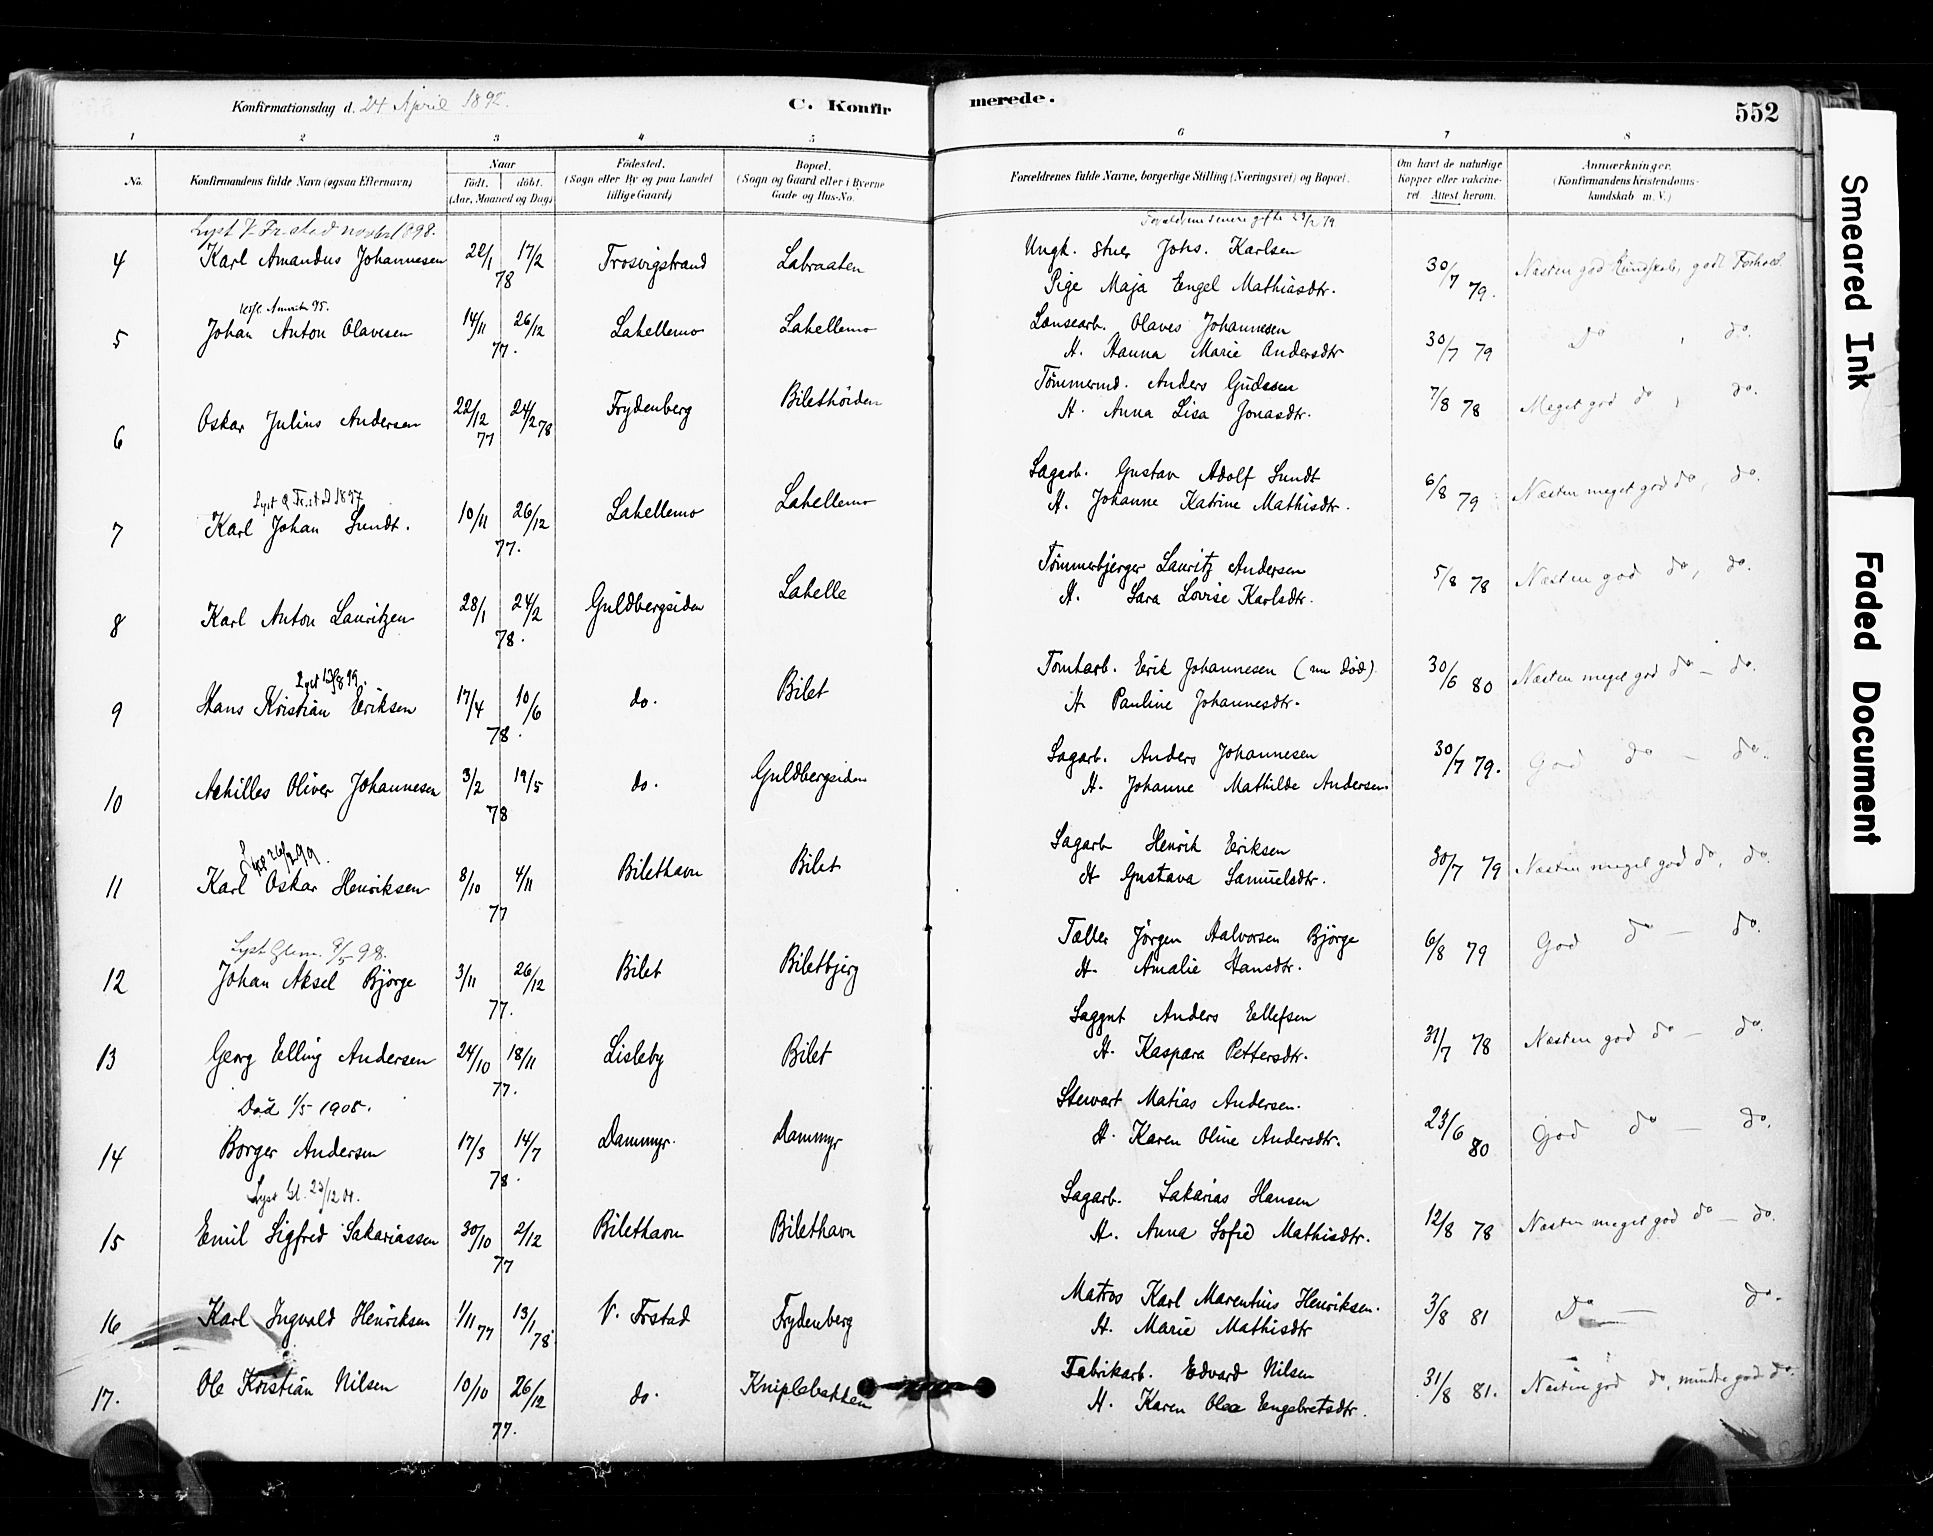 Konfirmationsdag d. 24 April 1892.
C. Konfirmerede.
552
1 2 3 4 5 6 7 8
No.
Konfirmandens fulde Navn (ogsaa Efternavn)
Naar
født. døbt.
(Aar, Maaned og Dag)
Fødested.
(Sogn eller By og paa Landet
tillige Gaard)
Bopæl.
(Sogn og Gaard eller i Byerne
Gade og Hus-No.
Forældrenes fulde Navne, borgerlige Stilling (Næringsvei) og Bopæl.
Om havt de naturlige
Kopper eller vakcine-
ret Attest herom.
Anmærkninger.
(Konfirmandens Kristendoms-
kundskab m. V.)
Forældrene senere gifte
4 Karl Amandus Johannesen 22/1 17/2 78 Trosvigstrand Labraaten
Ungk. Stuer Johs. Karlsen
Pige Maja Engel Mathiasdtr.
30/7 79. Næsten god Kundskab, godt Forhold.
5 Johan Anton Olavesen 14/11 26/12 77. Lahellemo Lahellemo
Lænsearb. Olaves Johannesen
H. Hanna Marie Andersdtr
30/7 79 Do , do.
6 Oskar Julius Andersen 22/12 77 24/2 78 Frydenberg Bilethöiden
Tømmermd. Anders Gudesen
H. Anna Lisa Jonasdtr.
7/8 78 Meget god do , do.
Lyst Q Fr.stad 1897
7 Karl Johan Sundt. 10/11 26/12 77. Lahellemo Lahellemo
Sagarb. Gustav Adolf Sundt
H. Johanne Katrine Mathisdtr.
6/8 79 Næsten meget god do, do.
8 Karl Anton Lauritzen 28/1 24/2 78. Guldbergsiden Lahelle
Tømmerbjerger Lauritz Andersen
H. Sara Lovise Karlsdtr.
5/8 78 Næsten god do, do.
9 Hans Kristian Eriksen 17/4 10/6 78. do. Bilet
Tomtarb. Erik Johannesen (nu død)
H. Pauline Johannesdtr.
30/6 80 Næsten meget god do — do.
10 Achilles Oliver Johannesen 3/2 19/5 78 do. Guldbergsiden
Sagarb. Anders Johannesen
H. Johanne Mathilde Andersen.
30/7 79. God do — do.
11 Karl Oskar Henriksen 8/10 4/11 77 Bilethavn Bilet
Sagarb Henrik Eriksen
H Gustava Samuelsdtr.
30/7 79 Næsten meget god do, do.
Lyst Glem. 8/5 98.
12 Johan Aksel Bjørge 3/11 26/12 77. Bilet Biletbjerg
Tæller Jørgen Halvorsen Bjørge
H. Amalie Hansdtr.
6/8 79 God do — do.
13 Georg Elling Andersen 24/10 18/11 77. Lisleby Bilet
Saggut Anders Ellefsen
H. Kaspara Pettersdtr.
31/7 78 Næsten god do — do.
Død 1/5 1905.
14 Borger Andersen 17/3 14/7 78. Dammyr. Dammyr
Stewart Matias Andersen.
H. Karen Oline Andersdtr.
23/6 80 God do — do.
Lyst Gl. 23/12 01.
15 Emil Sigfred Sakariassen 30/10 2/12 77 Bilethavn Bilethavn
Sagarb. Sakarias Hansen
H. Anna Sofie Mathisdtr.
12/8 78 Næsten meget god do — do.
16 Karl Ingvald Henriksen 1/11 77 13/1 78. V. Frstad Frydenberg
Matros Karl Marentius Henriksen.
H. Marie Mathisdtr
3/8 81 Do — do.
17. Ole Kristian Nilsen 10/10 26/12 77. do. Kniplebakken
Fabrikarb. Edvard Nilsen
H. Karen Olea Engebretsdtr.
31/8 81. Næsten god do, mindre god do.
Smeared Ink
Faded Document